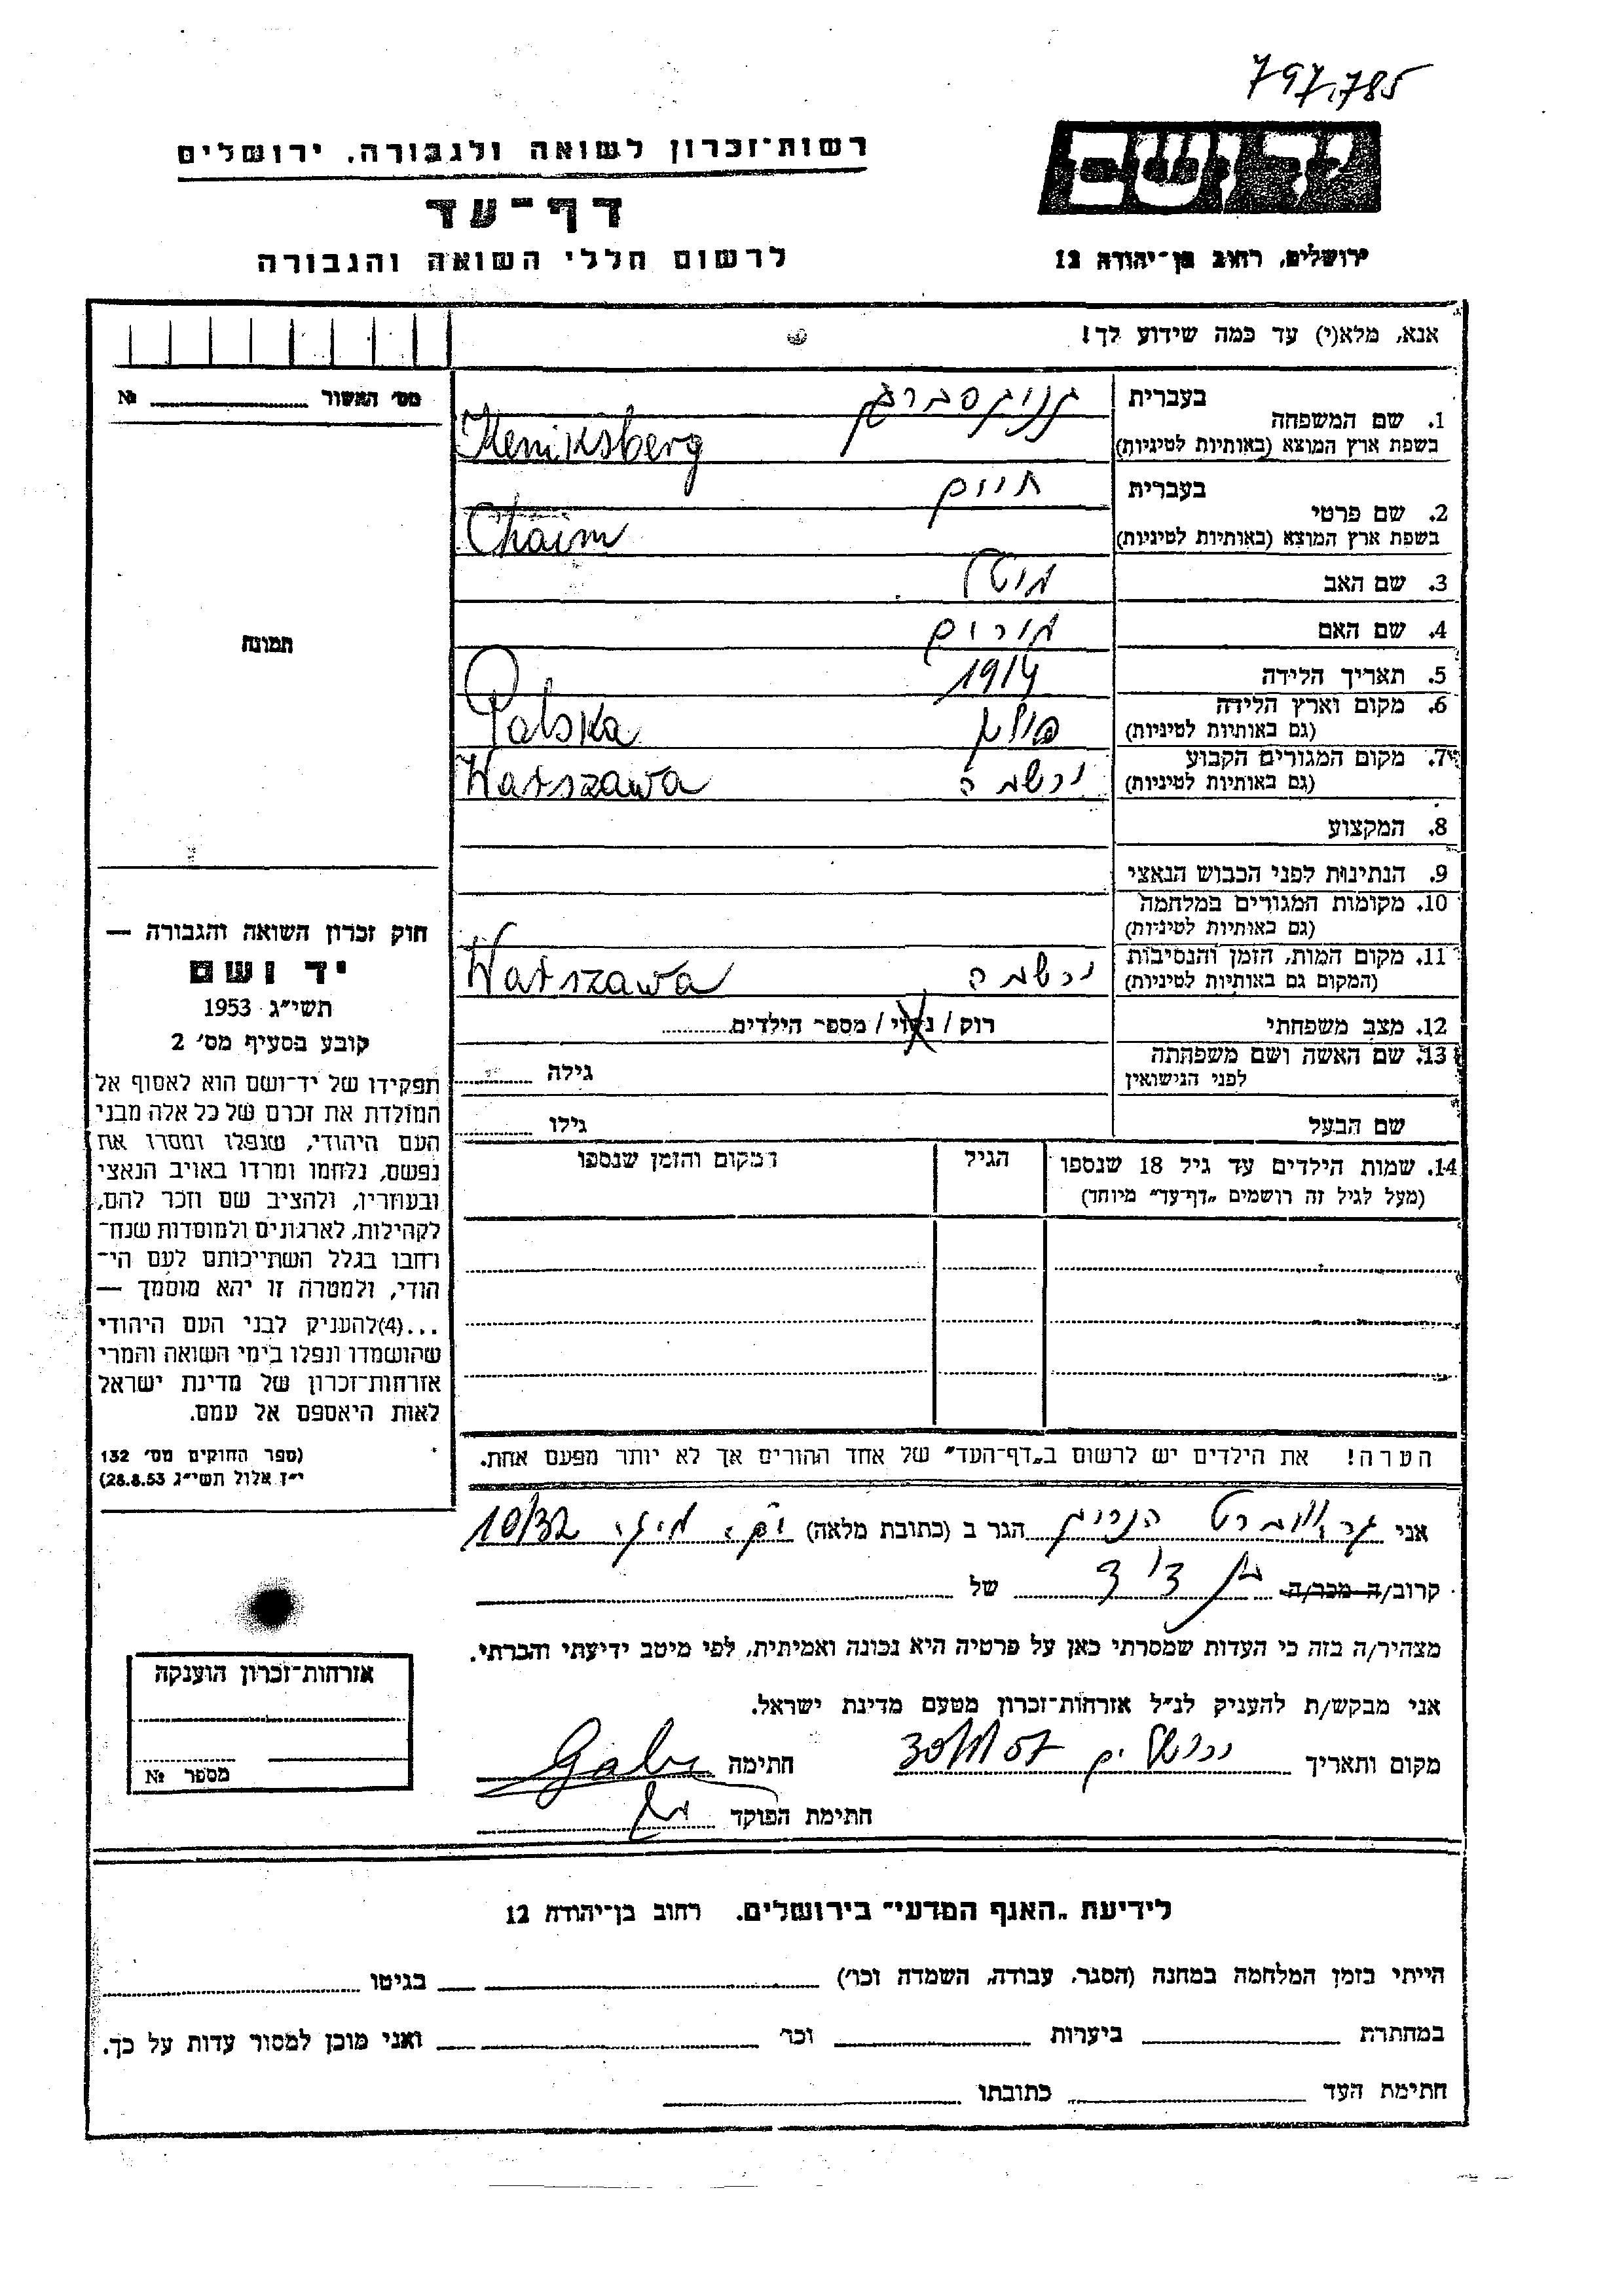 797,785
רשות־זכרון לשואה ולגבורה, ירושלים
דף־עד
לרשום חללי השואה והגבורה
יד ושם
ירושלים, רחוב בן־יהודה 12
אנא, מלא(י) עד כמה שידוע לך!
מס׳ האשור № 
תמונה
1. שם המשפחה
בעברית קניגסברג
בשפת ארץ המוצא (באותיות לטיניות) Keniksberg
2. שם פרטי
בעברית חיים
בשפת ארץ המוצא (באותיות לטיניות) Chaim
3. שם האב מוטל
4. שם האם מרים
5. תאריך הלידה 1914
6. מקום וארץ הלידה (גם באותיות לטיניות) פולין Polska
7. מקום המגורים הקבוע (גם באותיות לטיניות) ורשבה Warszawa
8. המקצוע
9. הנתינות לפני הכבוש הנאצי
10. מקומות המגורים במלחמה (גם באותיות לטיניות)
11. מקום המות, הזמן והנסיבות (המקום גם באותיות לטיניות) ורשבה Warszawa
12. מצב משפחתי רוק / נשוי / מספר הילדים
13. שם האשה ושם משפחתה לפני הנישואין גילה
שם הבעל גילו
14. שמות הילדים עד גיל 18 שנספו
(מעל לגיל זה רושמים „דף־עד״ מיוחד)
הגיל
המקום והזמן שנספו
הערה! את הילדים יש לרשום ב„דף־העד״ של אחד ההורים אך לא יותר מפעם אחת.
חוק זכרון השואה והגבורה —
יד ושם
תשי״ג 1953
קובע בסעיף מס׳ 2
תפקידו של יד־ושם הוא לאסוף אל
המולדת את זכרם של כל אלה מבני
העם היהודי, שנפלו ומסרו את
נפשם, נלחמו ומרדו באויב הנאצי
ובעוזריו, ולהציב שם וזכר להם,
לקהילות, לארגונים ולמוסדות שנח־
רבו בגלל השתייכותם לעם הי־
הודי, ולמטרה זו יהא מוסמך —
...(4)להעניק לבני העם היהודי
שהושמדו ונפלו בימי השואה והמרי
אזרחות־זכרון של מדינת ישראל
לאות היאספם אל עמם.
(ספר החוקים מס׳ 132
י״ז אלול תשי״ג 28.8.53)
אני הגר ב (כתובת מלאה) 10/32
קרוב/ה מכר/ה בן דוד של
מצהיר/ה בזה כי העדות שמסרתי כאן על פרטיה היא נכונה ואמיתית, לפי מיטב ידיעתי והכרתי.
אני מבקש/ת להעניק לנ״ל אזרחות־זכרון מטעם מדינת ישראל.
מקום ותאריך ירושלים חתימה
חתימת הפוקד
אזרחות־זכרון הוענקה
מספר №
לידיעת „האגף המדעי״ בירושלים. רחוב בן־יהודה 12
הייתי בזמן המלחמה במחנה (הסגר, עבודה, השמדה וכו׳) בגיטו
במחתרת ביערות וכו׳ ואני מוכן למסור עדות על כך.
חתימת העד כתובתו